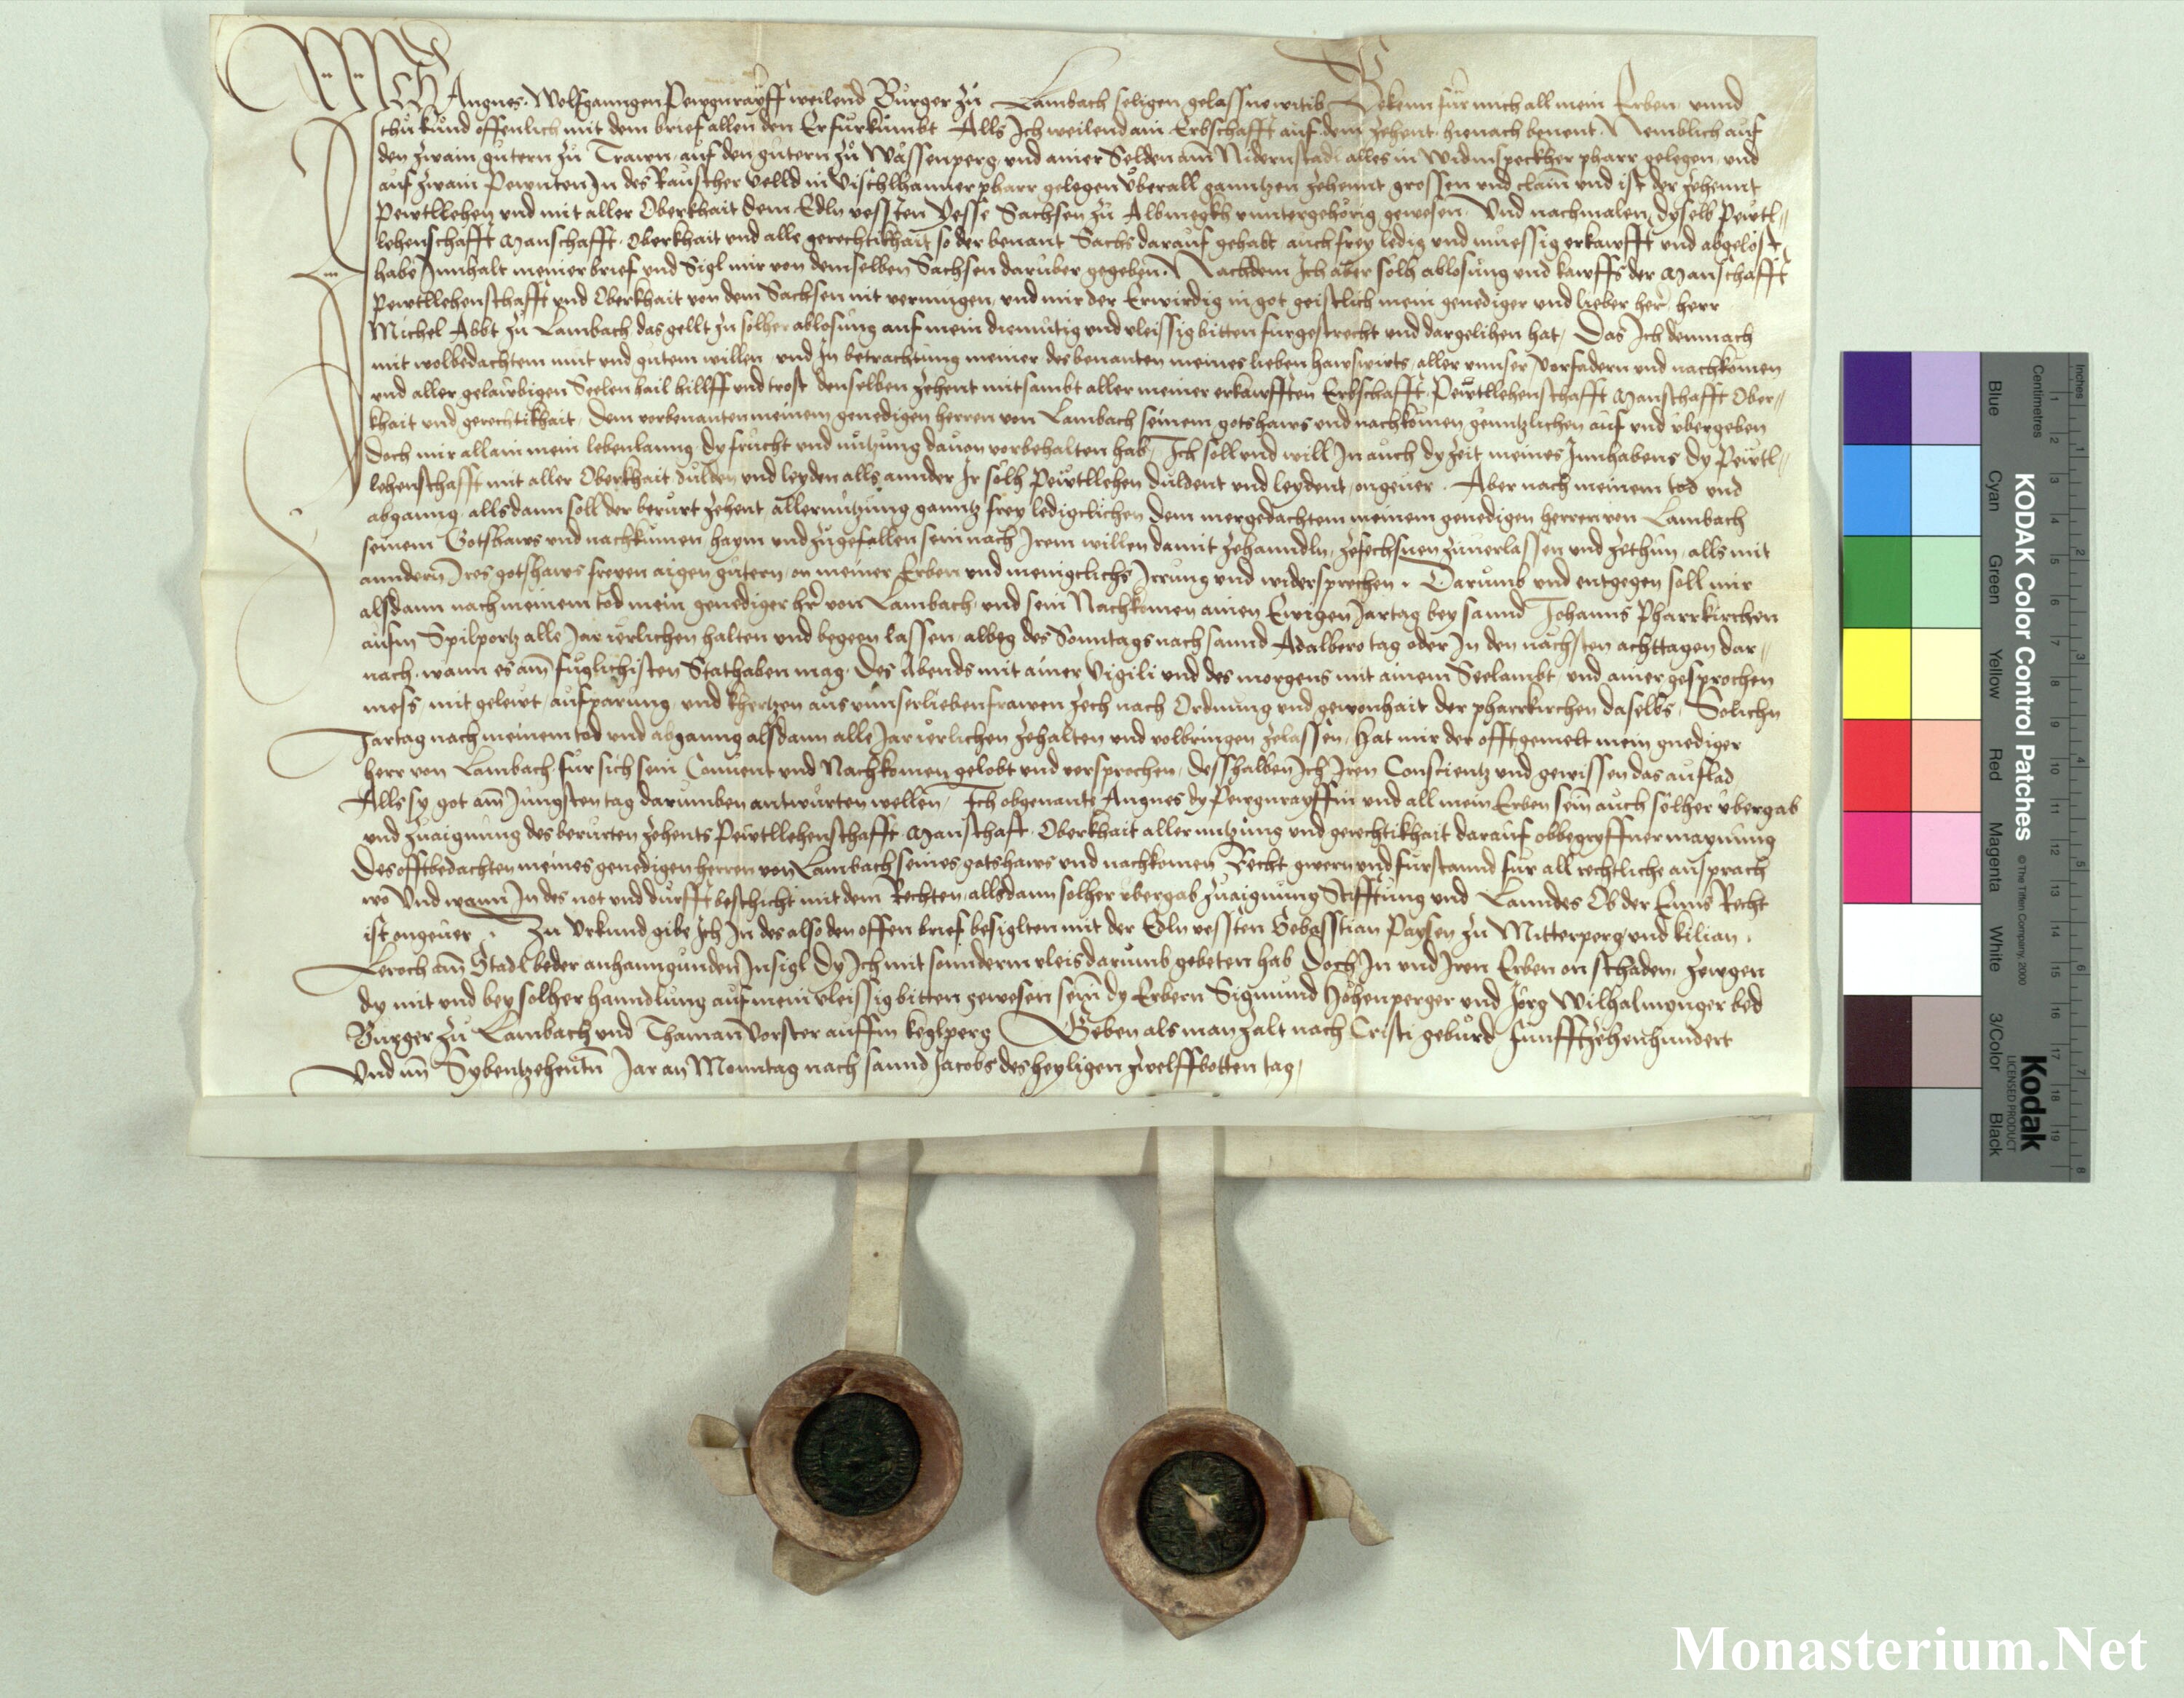 Ich Angnes Wolfganngen Pewgnrayff weilend Burger zů Lambach seligen gelassne witib Bekenn für mich all mein Erben vnnd
thů kund offenlich mit dem brief allen den Er fürkůmbt Alls Ich weilend ain Erbschafft auf dem zehent hienach benent Nemblich auf
den zwain gütern zů Trawn auf den gütern zů Wassenperg vnd ainer Selden am Nidernstadl alles in Widmspeckher pharr gelegen vnd
auf zwain Pewnten In des Rauscher velld in Vischlhamer pharr gelegen überall ganntzen zehennt grossen vnd clain vnd ist der zehennt
Pewtllehen vnd mit aller Oberkhait dem Edln vessten Vesse Sachsen zů Albmegkh vnntergehörig gewesen Vnd nachmalen dyselb Pewtl
lehenschafft Manschafft Oberkhait vnd alle gerechtikhait so der benant Sachs darauf gehabt auch frey ledig vnd müessig erkawfft vnd abgelöst
habe Innhalt meiner brief vnd Sigl mir von demselben Sachsen darüber gegeben Nachdem Ich aber solh ablosung vnd kawffs der Manschafft
Pewtllehenschafft vnd Oberkhait von dem Sachsen nit vermügen vnd mir der Erwirdig in got geistlich mein genediger vnd lieber her herr
Michel Abbt zů Lambach das gellt zu solher ablosung auf mein diemütig vnd vleissig bitten fürgestrecht vnd dargelihen hat Das Ich demnach
mit wolbedachtem mut vnd gutem willen vnd In betrachtung meiner des benanten meines lieben hawswirts aller vnnser vorfadern vnd nachkomen
vnd aller gelawbigen Seelen hail hillff vnd trost denselben zehent mitsambt aller meiner erkawfften Erbschafft Pewtllehenschafft Manschafft Ober
khait vnd gerechtikhait dem vorbenanten meinem genedigen herren von Lambach seinem gotshaws vnd nachkomen genntzlichen auf vnd übergeben
doch mir allain mein lebenlanng dy frücht vnd nützung dauon vorbehalten hab Ich soll vnd will In auch dy zeit meines Innhabens dy Pewtl
lehenschafft mit aller Oberkhait dulden vnd leyden alls annder Ir solh Pewtllehen duldent vnd leydent ongeuer Aber nach meinem tod vnd
abganng allsdann soll der berürt zehent aller nützung ganntz frey ledigclichen dem mergedachtem meinem genedigen herren von Lambach
seinem Gotshaws vnd nachkumen haym vnd zůgefallen sein nach Irem willen damit zehanndln zefechsnen zuuerlassen vnd zethun alls mit
anndern Ires gotshaws freyen aigen gütern on meiner Erben vnd menigclichs Irrung vnd widersprechen Darumb vnd entgegen soll mir
alsdann nach meinem tod mein genediger hr von Lambach vnd sein Nachkomen ainen Ewigen Jartag bey sannd Johanns Pharrkirchen
aufm Spilportz alle Jar ierlichen halten vnd begeen lassen albeg des Sonntags nach sannd Adalbero tag oder In den nächsten achttagen dar
nach wann es am füglichisten Stathaben mag Des Abends mit ainer Vigili vnd des morgens mit ainem Seelambt vnd ainer gesprochen
mess mit geleut aufparung vnd khertzen aus vnnser lieben frawen zech nach Ordnung vnd gewonhait der pharrkirchen daselbs Solichn
Jartag nach meinem tod vnd abganng alsdann alle Jar ierlichen zehalten vnd volbringen zelassen Hat mir der offtgemelt mein gnediger
herr von Lambach für sich sein Conuent vnd Nachkomen gelobt vnd versprochen desshalben Ich Iren Conscientz vnd gewissen das auflad
Alls sy got am Jüngsten tag darumben antwürten wellen Ich obgenante Angnes dy Pewgnrayffin vnd all mein Erben sein auch solher übergab
vnd zuaignung des berürten zehents Pewtllehenschafft Manschaft Oberkhait aller nutzung vnd gerechtikhait darauf obbegryffner maynung
Des offtbedachten meines genedigen herren von Lambach seines gotshaws vnd nachkomen Recht gwern vnd fürstannd für all rechtliche ansprach
wo Vnd wann In des not vnd dürfft beschicht mit dem Rechten allsdann solher übergab zuaignung Stifftung vnd Lanndes Ob der Enns Recht
ist ongeuer Zu Vrkund gibe Ich In des also den offen brief besiglten mit der Edln vessten Sebasstian Paysen zu Mitterperg vnd kilian
Leroch am Stadl beder anhanngunden Insigl Dy Ich mit sonnderm vleis darumb gebeten hab Doch In vnd Iren Erben on schaden Zewgen
dy mit vnd bey solher hanndlung auf mein vleissig bitten gewesen sein dy Erbern Sigmund Höhenperger vnd Jörg Wilhalmynger bed
Burger zů Lambach vnd Thaman Vorster auffm keglperg Geben als man zalt nach Cristi gebürd Funfftzehenhundert
Vnd im Sybentzehentn Jar an Monntag nach sannd Jacobs des heyligen zwelffbotten tag
KODAK Color Control Patches
© The Tiffen Company, 2000
Kodak
LICENSED PRODUCT
Inches
Centimetres
Blue
Cyan
Green
Yellow
Red
Magenta
White
3/Color
Black
Monasterium.Net